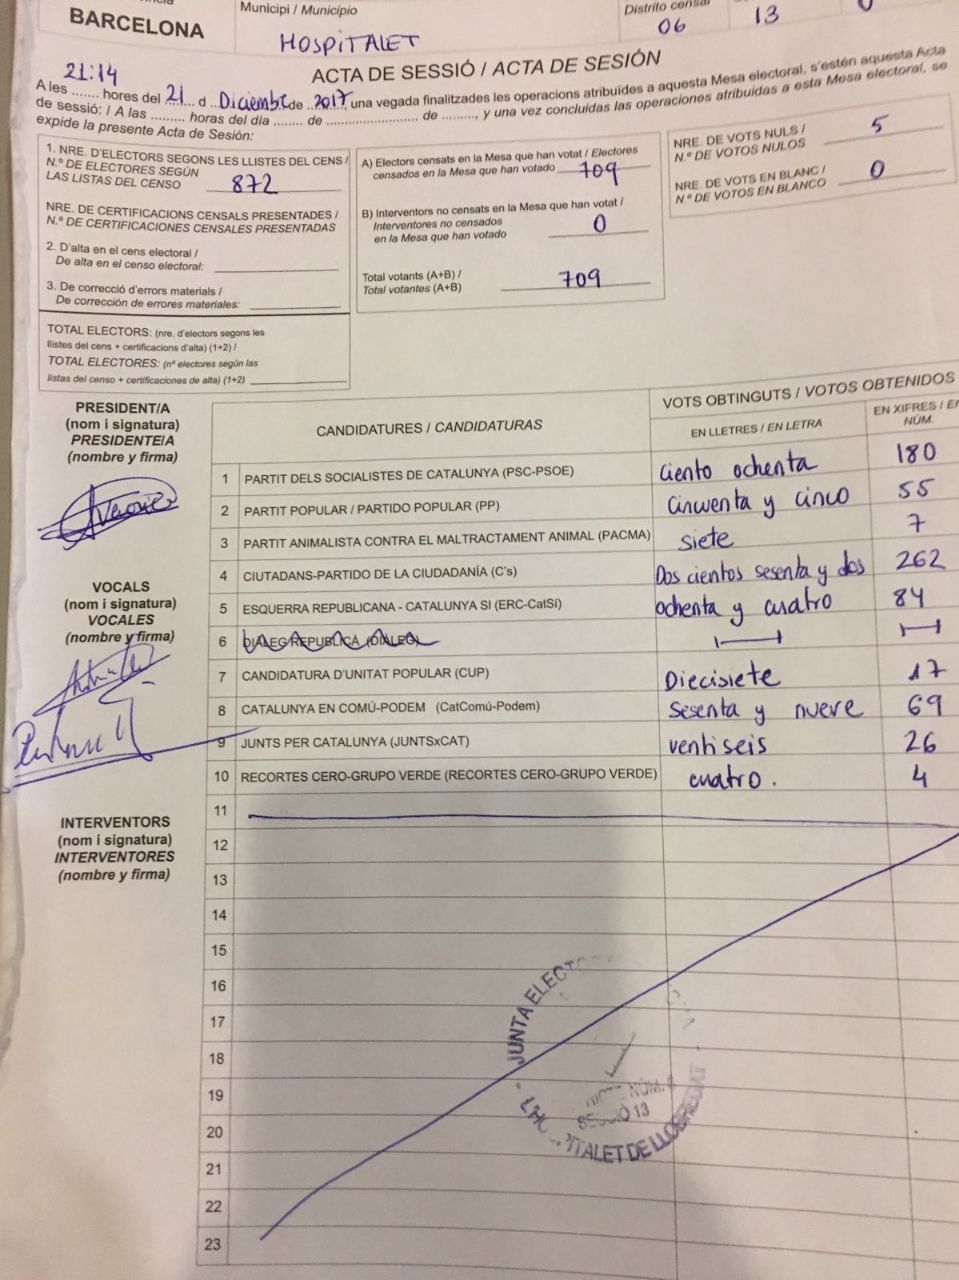 BARCELONA
Municipi / Municipio
HOSPITALET
Distrito censal
06
13
0
ACTA DE SESSIÓ / ACTA DE SESIÓN
21:14
A les ....... hores del 21 d Diciembre de 2017 una vegada finalitzades les operacions atribuïdes a aquesta Mesa electoral, s'estén aquesta Acta
de sessió: / A las ......... horas del día ........ de .......................... de ........., y una vez concluidas las operaciones atribuidas a esta Mesa electoral, se
expide la presente Acta de Sesión:
1. NRE. D'ELECTORS SEGONS LES LLISTES DEL CENS /
N.º DE ELECTORES SEGÚN
LAS LISTAS DEL CENSO 872
NRE. DE CERTIFICACIONS CENSALS PRESENTADES /
N.º DE CERTIFICACIONES CENSALES PRESENTADAS
2. D'alta en el cens electoral /
De alta en el censo electoral:
3. De correcció d'errors materials /
De corrección de errores materiales:
TOTAL ELECTORS: (nre. d'electors segons les
llistes del cens + certificacions d'alta) (1+2) /
TOTAL ELECTORES: (nº electores según las
listas del censo + certificaciones de alta) (1+2)
A) Electors censats en la Mesa que han votat / Electores
censados en la Mesa que han votado 709
B) Interventors no censats en la Mesa que han votat /
Interventores no censados
en la Mesa que han votado 0
Total votants (A+B) /
Total votantes (A+B) 709
NRE. DE VOTS NULS /
N.º DE VOTOS NULOS 5
NRE. DE VOTS EN BLANC /
N.º DE VOTOS EN BLANCO 0
PRESIDENT/A
(nom i signatura)
PRESIDENTE/A
(nombre y firma)
VOCALS
(nom i signatura)
VOCALES
(nombre y firma)
INTERVENTORS
(nom i signatura)
INTERVENTORES
(nombre y firma)
CANDIDATURES / CANDIDATURAS
VOTS OBTINGUTS / VOTOS OBTENIDOS
EN LLETRES / EN LETRA
EN XIFRES / EN
NÚM.
1 PARTIT DELS SOCIALISTES DE CATALUNYA (PSC-PSOE) ciento ochenta 180
2 PARTIT POPULAR / PARTIDO POPULAR (PP) cincuenta y cinco 55
3 PARTIT ANIMALISTA CONTRA EL MALTRACTAMENT ANIMAL (PACMA) siete 7
4 CIUTADANS-PARTIDO DE LA CIUDADANÍA (C's) Dos cientos sesenta y dos 262
5 ESQUERRA REPUBLICANA - CATALUNYA SI (ERC-CatSí) ochenta y cuatro 84
6 DIÀLEG REPUBLICÀ (DIÀLEG)
7 CANDIDATURA D'UNITAT POPULAR (CUP) Diecisiete 17
8 CATALUNYA EN COMÚ-PODEM (CatComú-Podem) sesenta y nueve 69
9 JUNTS PER CATALUNYA (JUNTSxCAT) ventiseis 26
10 RECORTES CERO-GRUPO VERDE (RECORTES CERO-GRUPO VERDE) cuatro. 4
11
12
13
14
15
16
17
18
19
20
21
22
23
JUNTA ELECTO
NÚM.
SECCIÓ 13
L'HOSPITALET DE LLOBREGAT